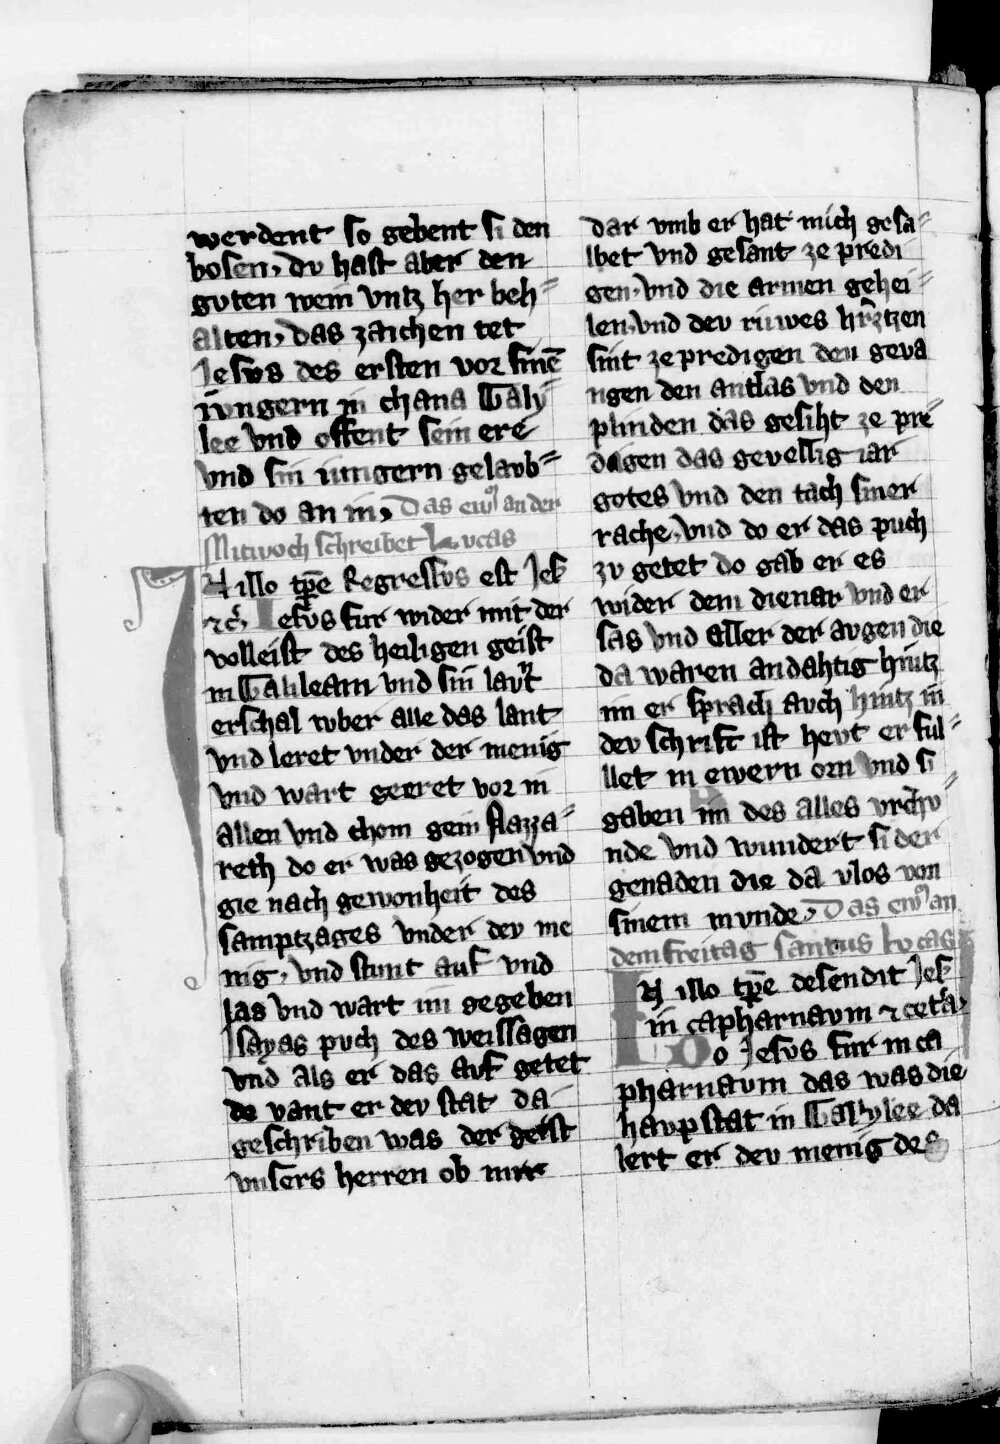 werdent so gebent si den
bosen, dv hast aber den
guten wein vntz her beh=
alten, das zaichen tet
Jesus des ersten vor sinē
iungern in chana Galy
lee vnd offent sein ere
vnd sin iungern gelavb=
ten do an in, Das ew̄ an der
Mitwoch schreibet Lucas
In illo tp̄e Regressvs est Jes
⁊c̄, Jesvs fur wider mit der
volleist des heiligen geist
in Galileam vnd sin lavt
erschal vber alle das lant
vnd leret vnder der menig
vnd wart geeret vor in
allen vnd chom gein Nazza=
reth do er was gezogen vnd
gie nach gewonheit des
samptzages vnder dev me
nig, vnd stunt auf vnd
las vnd wart im gegeben
Isayas puch des weissagen
vnd als er das auf getet
do vant er dev stat da
geschriben was der geist
vnsers herren ob mir
dar vmb er hat mich gesa=
lbet vnd gesant ze predi
gen, vnd die armen gehei=
len, vnd dev riuwes hertzen
sint ze predigen den geva
ngen den antlas vnd den
plinden das gesiht ze pre=
digen das gevellig iar
gotes vnd den tach siner
rache, vnd do er das puch
zv getet do gab er es
wider dem dienar vnd er
sas vnd aller der avgen die
da waren andahtig hintz
im er sprach avch hintz in
dev schrift ist hevt erful=
llet in ewern orn vnd si
gaben im des alles vrchv=
nde vnd wundert si der
genaden die da vlos von
sinem mvnde, Das ew̄ an
dem freitag santus Lvcas
In illo tp̄e desendit Jes
in capharnavm ⁊ cetera
Do Jesvs fur in ca
pharnavm das was die
havpstat in Galylee da
lert er dev menig des